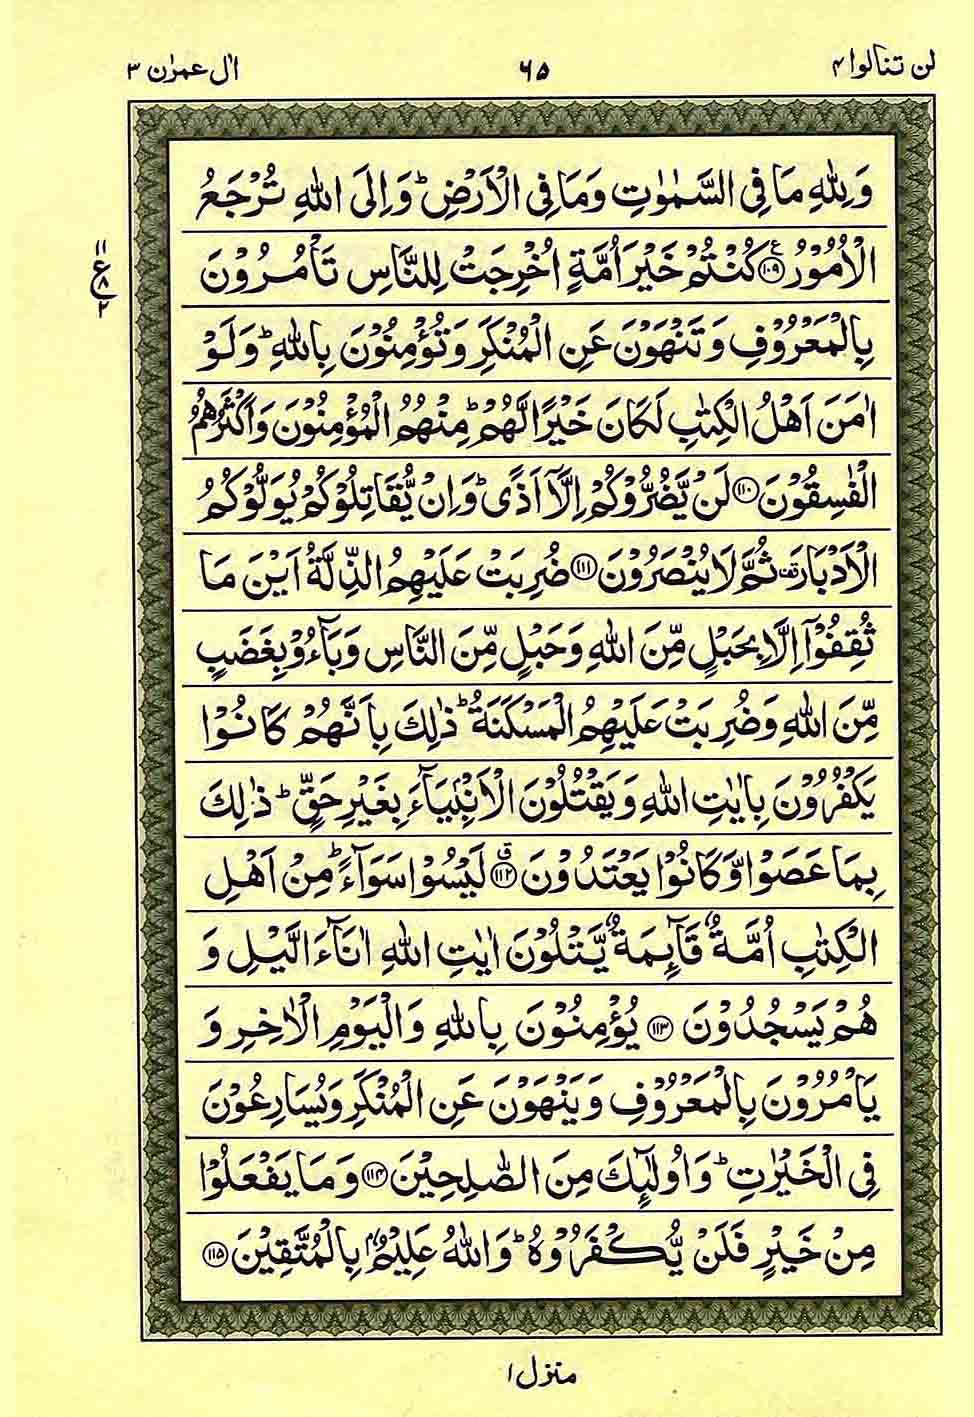 لن تنالوا ۴
۶۵
اٰل عمرٰن ۳
وَلِلّٰهِ مَا فِى السَّمٰوٰتِ وَمَا فِى الْاَرْضِ ؕ وَاِلَى اللّٰهِ تُرْجَعُ
الْاُمُوْرُ ﴿۱۰۹﴾ ع كُنْتُمْ خَيْرَ اُمَّةٍ اُخْرِجَتْ لِلنَّاسِ تَاْمُرُوْنَ
۱۱
ع
۸
۲
بِالْمَعْرُوْفِ وَتَنْهَوْنَ عَنِ الْمُنْكَرِ وَتُؤْمِنُوْنَ بِاللّٰهِ ؕ وَلَوْ
اٰمَنَ اَهْلُ الْكِتٰبِ لَكَانَ خَيْرًا لَّهُمْ ؕ مِنْهُمُ الْمُؤْمِنُوْنَ وَاَكْثَرُهُمُ
الْفٰسِقُوْنَ ﴿۱۱۰﴾ لَنْ يَّضُرُّوْكُمْ اِلَّاۤ اَذًى ؕ وَاِنْ يُّقَاتِلُوْكُمْ يُوَلُّوْكُمُ
الْاَدْبَارَ ۟ ثُمَّ لَا يُنْصَرُوْنَ ﴿۱۱۱﴾ ضُرِبَتْ عَلَيْهِمُ الذِّلَّةُ اَيْنَ مَا
ثُقِفُوْۤا اِلَّا بِحَبْلٍ مِّنَ اللّٰهِ وَحَبْلٍ مِّنَ النَّاسِ وَبَآءُوْ بِغَضَبٍ
مِّنَ اللّٰهِ وَضُرِبَتْ عَلَيْهِمُ الْمَسْكَنَةُ ؕ ذٰلِكَ بِاَنَّهُمْ كَانُوْا
يَكْفُرُوْنَ بِاٰيٰتِ اللّٰهِ وَيَقْتُلُوْنَ الْاَنْۢبِيَآءَ بِغَيْرِ حَقٍّ ؕ ذٰلِكَ
بِمَا عَصَوْا وَّكَانُوْا يَعْتَدُوْنَ ﴿۱۱۲﴾ ق لَيْسُوْا سَوَآءً ؕ مِنْ اَهْلِ
الْكِتٰبِ اُمَّةٌ قَآئِمَةٌ يَّتْلُوْنَ اٰيٰتِ اللّٰهِ اٰنَآءَ الَّيْلِ وَ
هُمْ يَسْجُدُوْنَ ﴿۱۱۳﴾ يُؤْمِنُوْنَ بِاللّٰهِ وَالْيَوْمِ الْاٰخِرِ وَ
يَاْمُرُوْنَ بِالْمَعْرُوْفِ وَيَنْهَوْنَ عَنِ الْمُنْكَرِ وَيُسَارِعُوْنَ
فِى الْخَيْرٰتِ ؕ وَاُولٰٓئِكَ مِنَ الصّٰلِحِيْنَ ﴿۱۱۴﴾ وَمَا يَفْعَلُوْا
مِنْ خَيْرٍ فَلَنْ يُّكْفَرُوْهُ ؕ وَاللّٰهُ عَلِيْمٌۢ بِالْمُتَّقِيْنَ ﴿۱۱۵﴾
منزل ۱